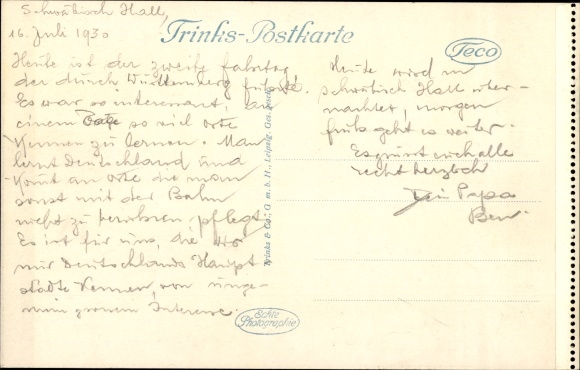 Schwäbisch Hall,
16. Juli 1930
Trinks-Postkarte
Teco
Heute ist der zweite Fahrtag
der durch Württemberg führt.
Es war so interessant, an
einem Tage so viel Orte
kennen zu lernen. Man
lernt Deutschland und
kommt an Orte die man
sonst mit der Bahn
nicht zu berühren pflegt.
Es ist für uns, die wir
nur Deutschlands Haupt
städte kennen, von unge-
mein grossem Interesse.
Heute wird in
schwäbisch Hall über-
nachtet, morgen
früh geht es weiter.
Es grüsst euch alle
recht herzlich
Dein Papa
Ben
Trinks & Co., G. m. b. H., Leipzig. Ges. gesch.
Echte
Photographie